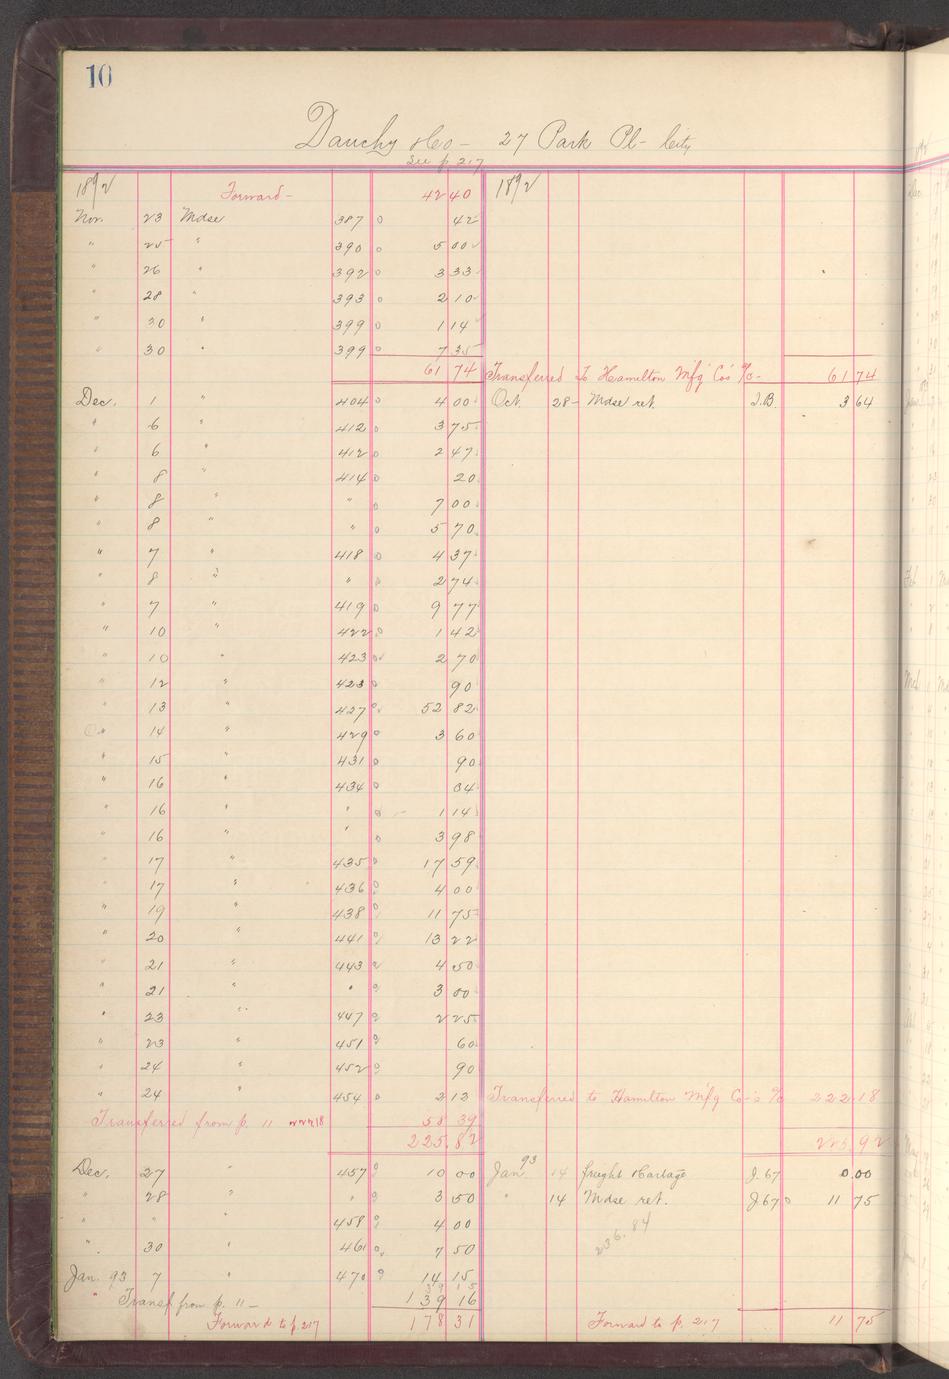 10
Dauchy & Co - 27 Park Pl- City
See p. 217
1892 Forward- 42 40 1892
Nov. 23 Mdse 387 0 42
" 25 " 390 0 5 00
" 26 " 392 0 3 33
" 28 " 393 0 2 10
" 30 " 399 0 1 14
" 30 " 399 0 7 35
61 74 Transferred To Hamilton Mfg Co's a/c- 61 74
Dec. 1 " 404 0 4 00 Oct. 28- Mdse ret. J.B. 3 64
" 6 " 412 0 3 75
" 6 " 412 0 2 47
" 8 " 414 0 20
" 8 " " 0 7 00
" 8 " " 0 5 70
" 7 " 418 0 4 37
" 8 " " 0 2 74
" 7 " 419 0 9 77
" 10 " 422 0 1 42
" 10 " 423 0 2 70
" 12 " 423 0 90
" 13 " 427 0 52 82
" 14 " 429 0 3 60
" 15 " 431 0 90
" 16 " 434 0 84
" 16 " " 0 1 14
" 16 " " 0 3 98
" 17 " 435 0 17 59
" 17 " 436 0 4 00
" 19 " 438 0 11 75
" 20 " 441 0 13 22
" 21 " 443 0 4 50
" 21 " " 0 3 00
" 23 " 447 0 2 25
" 23 " 451 0 60
" 24 " 452 0 90
" 24 " 454 0 2 12 Transferred to Hamilton Mfg Co-'s a/c 222 18
Transferred from p. 11 222 18 58 39
225 82 225 92
Dec. 27 " 457 0 10 00 Jan 93 14 freight & Cartage J. 67 0.00
" 28 " " 0 3 50 " 14 Mdse ret. J 67 0 11 75
" " " 458 0 4 00 236.84
" 30 " 461 0 7 50
Jan. 93 7 " 470 0 14 15
39 15
" Transf from p. 11 - 139 16
Forward to p. 217 178 31 Forward to p. 217 11 75